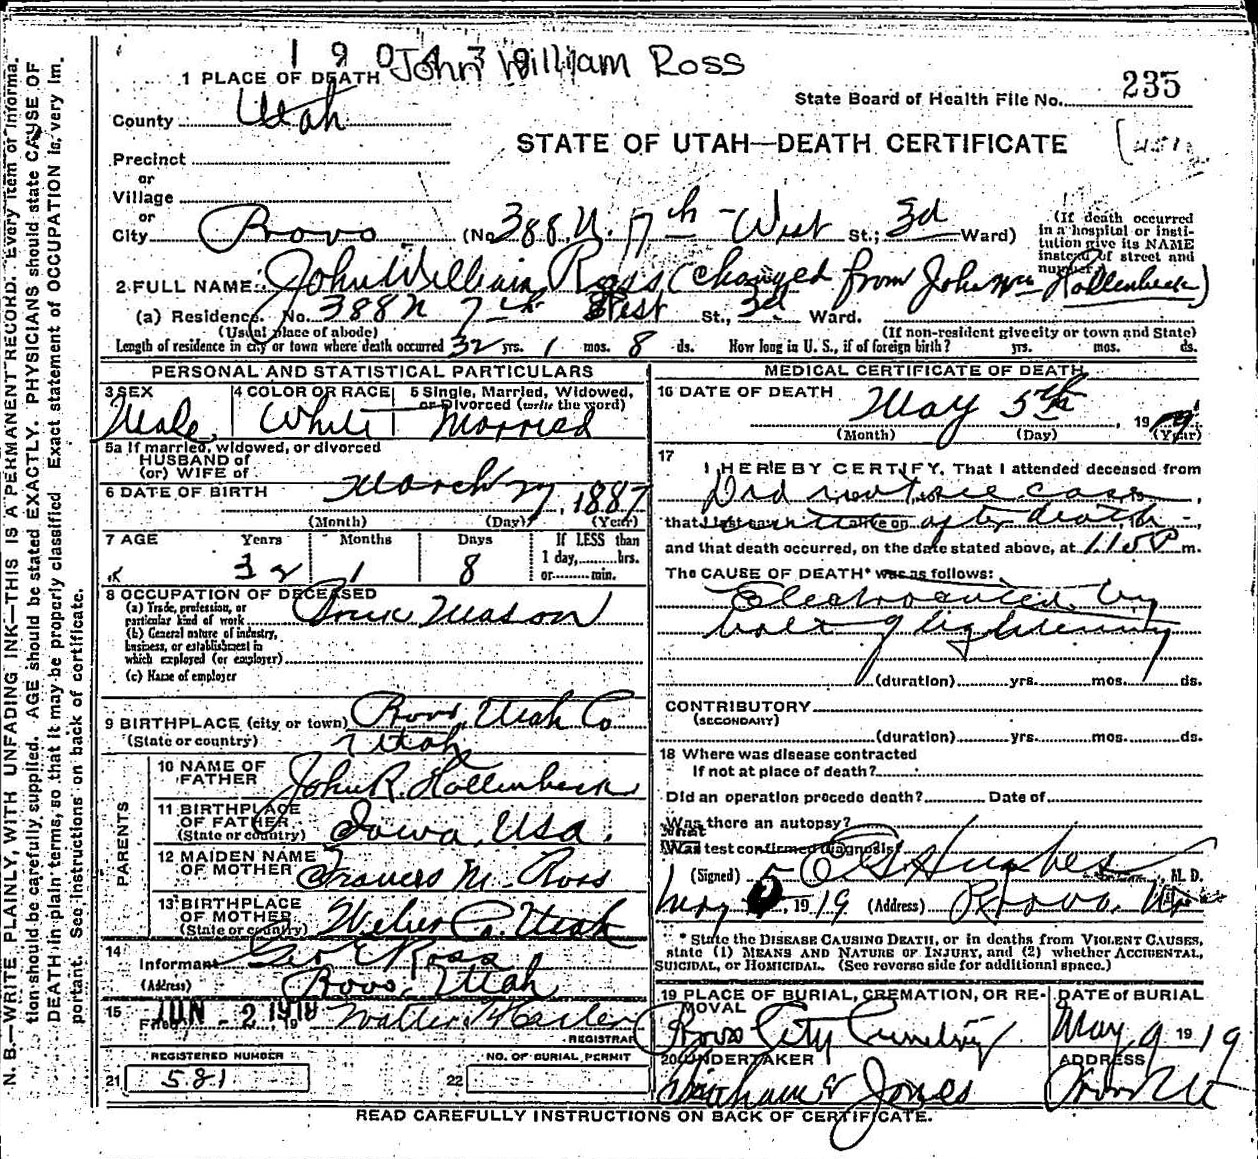 John William Ross
1 PLACE OF DEATH
State Board of Health File No. 235
County Utah
STATE OF UTAH—DEATH CERTIFICATE
Precinct
or
Village
or
City Provo (No. 388 N. 7th West St.; 3d Ward)
(If death occurred in a hospital or institution give its NAME instead of street and number.)
2 FULL NAME John William Ross (changed from John Wm Hollenbeck)
(a) Residence. No. 388 N 7th West St., 3d Ward.
(Usual place of abode) (If non-resident give city or town and State)
Length of residence in city or town where death occurred 32 yrs. 1 mos. 8 ds. How long in U. S., if of foreign birth? yrs. mos. ds.
PERSONAL AND STATISTICAL PARTICULARS
3 SEX Male
4 COLOR OR RACE White
5 Single, Married, Widowed, or Divorced (write the word) Married
5a If married, widowed, or divorced
HUSBAND of
(or) WIFE of
6 DATE OF BIRTH March 27, 1887
(Month) (Day) (Year)
7 AGE Years Months Days If LESS than
32 1 8 1 day, hrs.
or min.
8 OCCUPATION OF DECEASED
(a) Trade, profession, or particular kind of work Brick Mason
(b) General nature of industry, business, or establishment in which employed (or employer)
(c) Name of employer
9 BIRTHPLACE (city or town) Provo, Utah Co
(State or country) Utah
PARENTS
10 NAME OF FATHER John R. Hollenbeck
11 BIRTHPLACE OF FATHER (State or country) Iowa, USA.
12 MAIDEN NAME OF MOTHER Frances M. Ross
13 BIRTHPLACE OF MOTHER (State or country) Weber Co. Utah
14 Informant Geo E Ross
(Address) Provo, Utah
15 Filed JUN - 2 1919
REGISTRAR
REGISTERED NUMBER
21 581
NO. OF BURIAL PERMIT
22
MEDICAL CERTIFICATE OF DEATH
16 DATE OF DEATH May 5th, 1919
(Month) (Day) (Year)
17 I HEREBY CERTIFY, That I attended deceased from
Did not see case
that I last saw alive on after death
and that death occurred, on the date stated above, at 1:15 P m.
The CAUSE OF DEATH* was as follows:
Electrocuted by
bolt of lightening
(duration) yrs. mos. ds.
CONTRIBUTORY
(SECONDARY)
(duration) yrs. mos. ds.
18 Where was disease contracted
If not at place of death?
Did an operation precede death? Date of
Was there an autopsy?
What test confirmed diagnosis?
(Signed) Hughes, M. D.
May 5, 1919 (Address) Provo, Ut
* State the DISEASE CAUSING DEATH, or in deaths from VIOLENT CAUSES,
state (1) MEANS AND NATURE OF INJURY, and (2) whether ACCIDENTAL,
SUICIDAL, or HOMICIDAL. (See reverse side for additional space.)
19 PLACE OF BURIAL, CREMATION, OR REMOVAL DATE OF BURIAL
Provo City Cemetery May 9 1919
20 UNDERTAKER ADDRESS
Jones Provo Ut
READ CAREFULLY INSTRUCTIONS ON BACK OF CERTIFICATE.
N. B.—WRITE PLAINLY, WITH UNFADING INK—THIS IS A PERMANENT RECORD. Every item of informa-
tion should be carefully supplied. AGE should be stated EXACTLY. PHYSICIANS should state CAUSE OF
DEATH in plain terms, so that it may be properly classified. Exact statement of OCCUPATION is very im-
portant. See instructions on back of certificate.